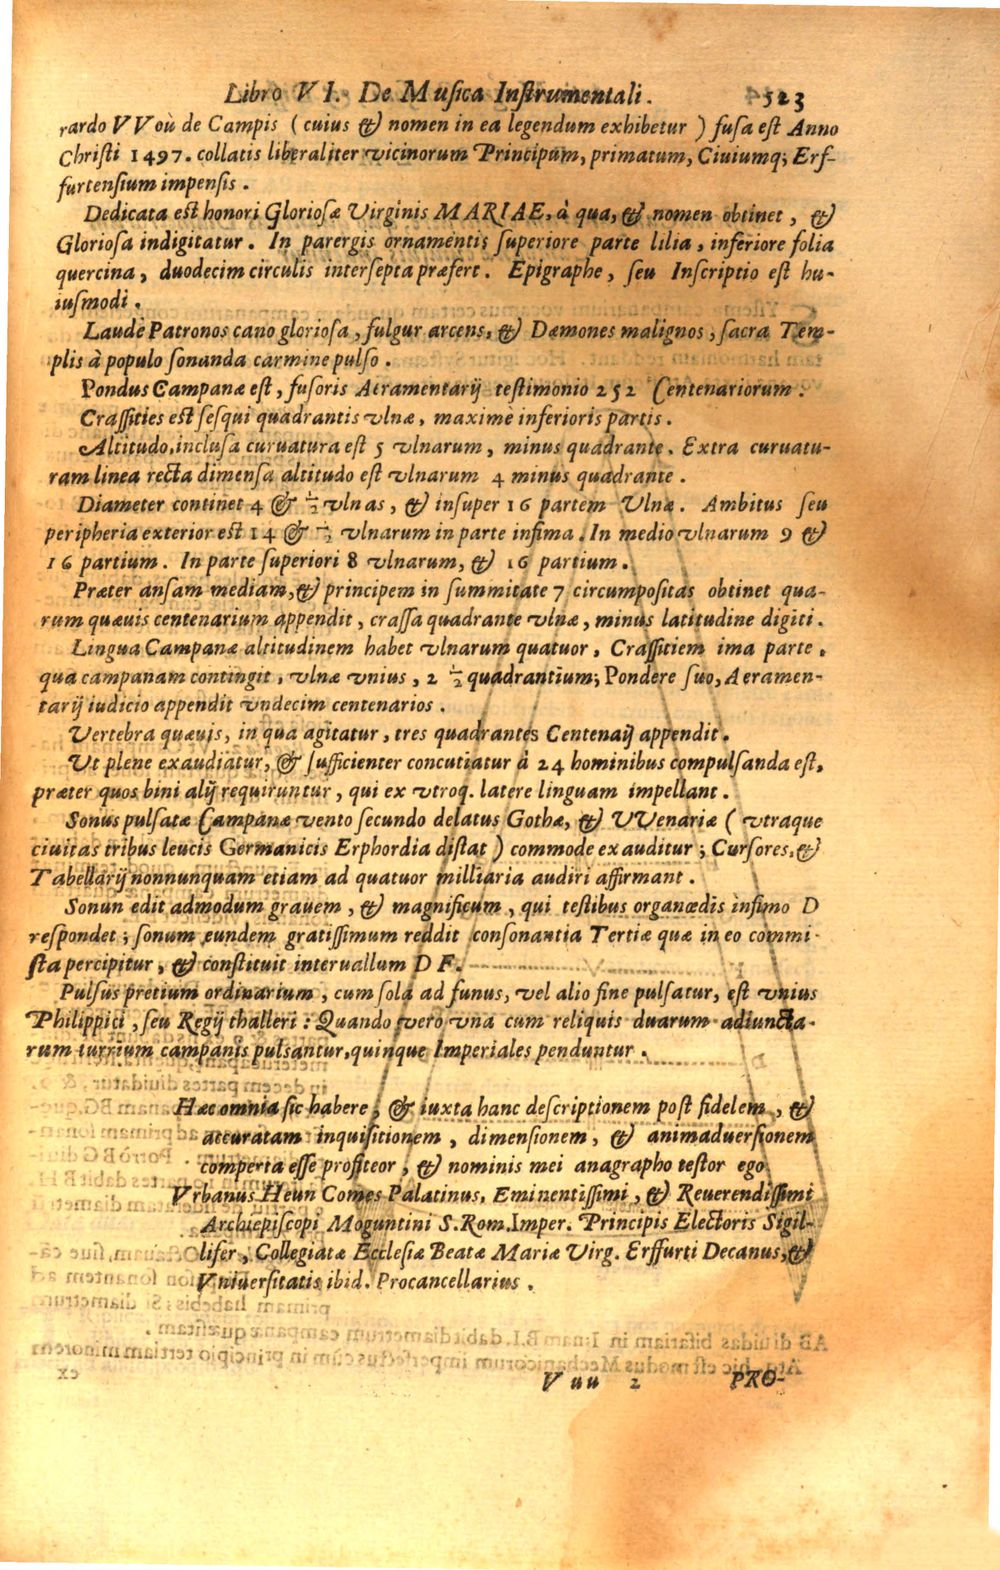 Libro VI. De Musica Instrumentali. 523
rardo VVoù de Campis ( cuius & nomen in ea legendum exhibetur ) fusa est Anno
Christi 1497. collatis liberaliter vicinorum Principum, primatum, Ciuiumq; Erf-
furtensium impensis .
Dedicata est honori Gloriosæ Virginis MARIAE, à qua, & nomen obtinet , &
Gloriosa indigitatur . In parergis ornamentis superiore parte lilia , inferiore folia
quercina , duodecim circulis intersepta præfert . Epigraphe , seu Inscriptio est hu-
iusmodi .
Laudè Patronos cano gloriosa , fulgur arcens, & Dæmones malignos , sacra Tem-
plis à populo sonanda carmine pulso .
Pondus Campanæ est, fusoris Aeramentarij testimonio 252 Centenariorum .
Crassities est sesqui quadrantis vlnæ, maximè inferioris partis .
Altitudo, inclusa curuatura est 5 vlnarum , minus quadrante . Extra curuatu-
ram linea recta dimensa altitudo est vlnarum 4 minus quadrante .
Diameter continet 4 & 1/2 vlnas , & insuper 16 partem Vlnæ . Ambitus seu
peripheria exterior est 14 & 1/2 vlnarum in parte infima . In medio vlnarum 9 &
16 partium . In parte superiori 8 vlnarum, & 16 partium .
Præter ansam mediam, & principem in summitate 7 circumpositas obtinet qua-
rum quæuis centenarium appendit , crassa quadrante vlnæ , minus latitudine digiti .
Lingua Campanæ altitudinem habet vlnarum quatuor , Crassitiem ima parte ,
qua campanam contingit , vlnæ vnius , 2 1/2 quadrantium; Pondere suo, Aeramen-
tarij iudicio appendit vndecim centenarios .
Vertebra quæuis, in qua agitatur , tres quadrantes Centenaij appendit .
Vt plene exaudiatur, & sufficienter concutiatur à 24 hominibus compulsanda est,
præter quos bini alij requiruntur , qui ex vtroq. latere linguam impellant .
Sonus pulsatæ Campanæ vento secundo delatus Gothæ, & VVenariæ ( vtraque
ciuitas tribus leucis Germanicis Erphordia distat ) commode exauditur ; Cursores, &
Tabellarij nonnunquam etiam ad quatuor milliaria audiri affirmant .
Sonun edit admodum grauem , & magnificum , qui testibus organœdis infimo D
respondet ; sonum eundem gratissimum reddit consonantia Tertiæ quæ in eo commi-
sta percipitur , & constituit interuallum D F.
Pulsus pretium ordinarium , cum sola ad funus, vel alio fine pulsatur, est vnius
Philippici , seu Regij thalleri : Quando vero vna cum reliquis duarum adiuncta-
rum turrium campanis pulsantur, quinque Imperiales penduntur .
Hæc omnia sic habere , & iuxta hanc descriptionem post fidelem , &
accuratam inquisitionem , dimensionem , & animaduersionem
comperta esse profiteor , & nominis mei anagrapho testor ego
Vrbanus Heun Comes Palatinus, Eminentissimi , & Reuerendissimi
Archiepiscopi Moguntini S. Rom. Imper. Principis Electoris Sigil-
lifer , Collegiatæ Ecclesiæ Beatæ Mariæ Virg. Erffurti Decanus, &
Vniuersitatis ibid. Procancellarius .
Vuu 2 PRO-